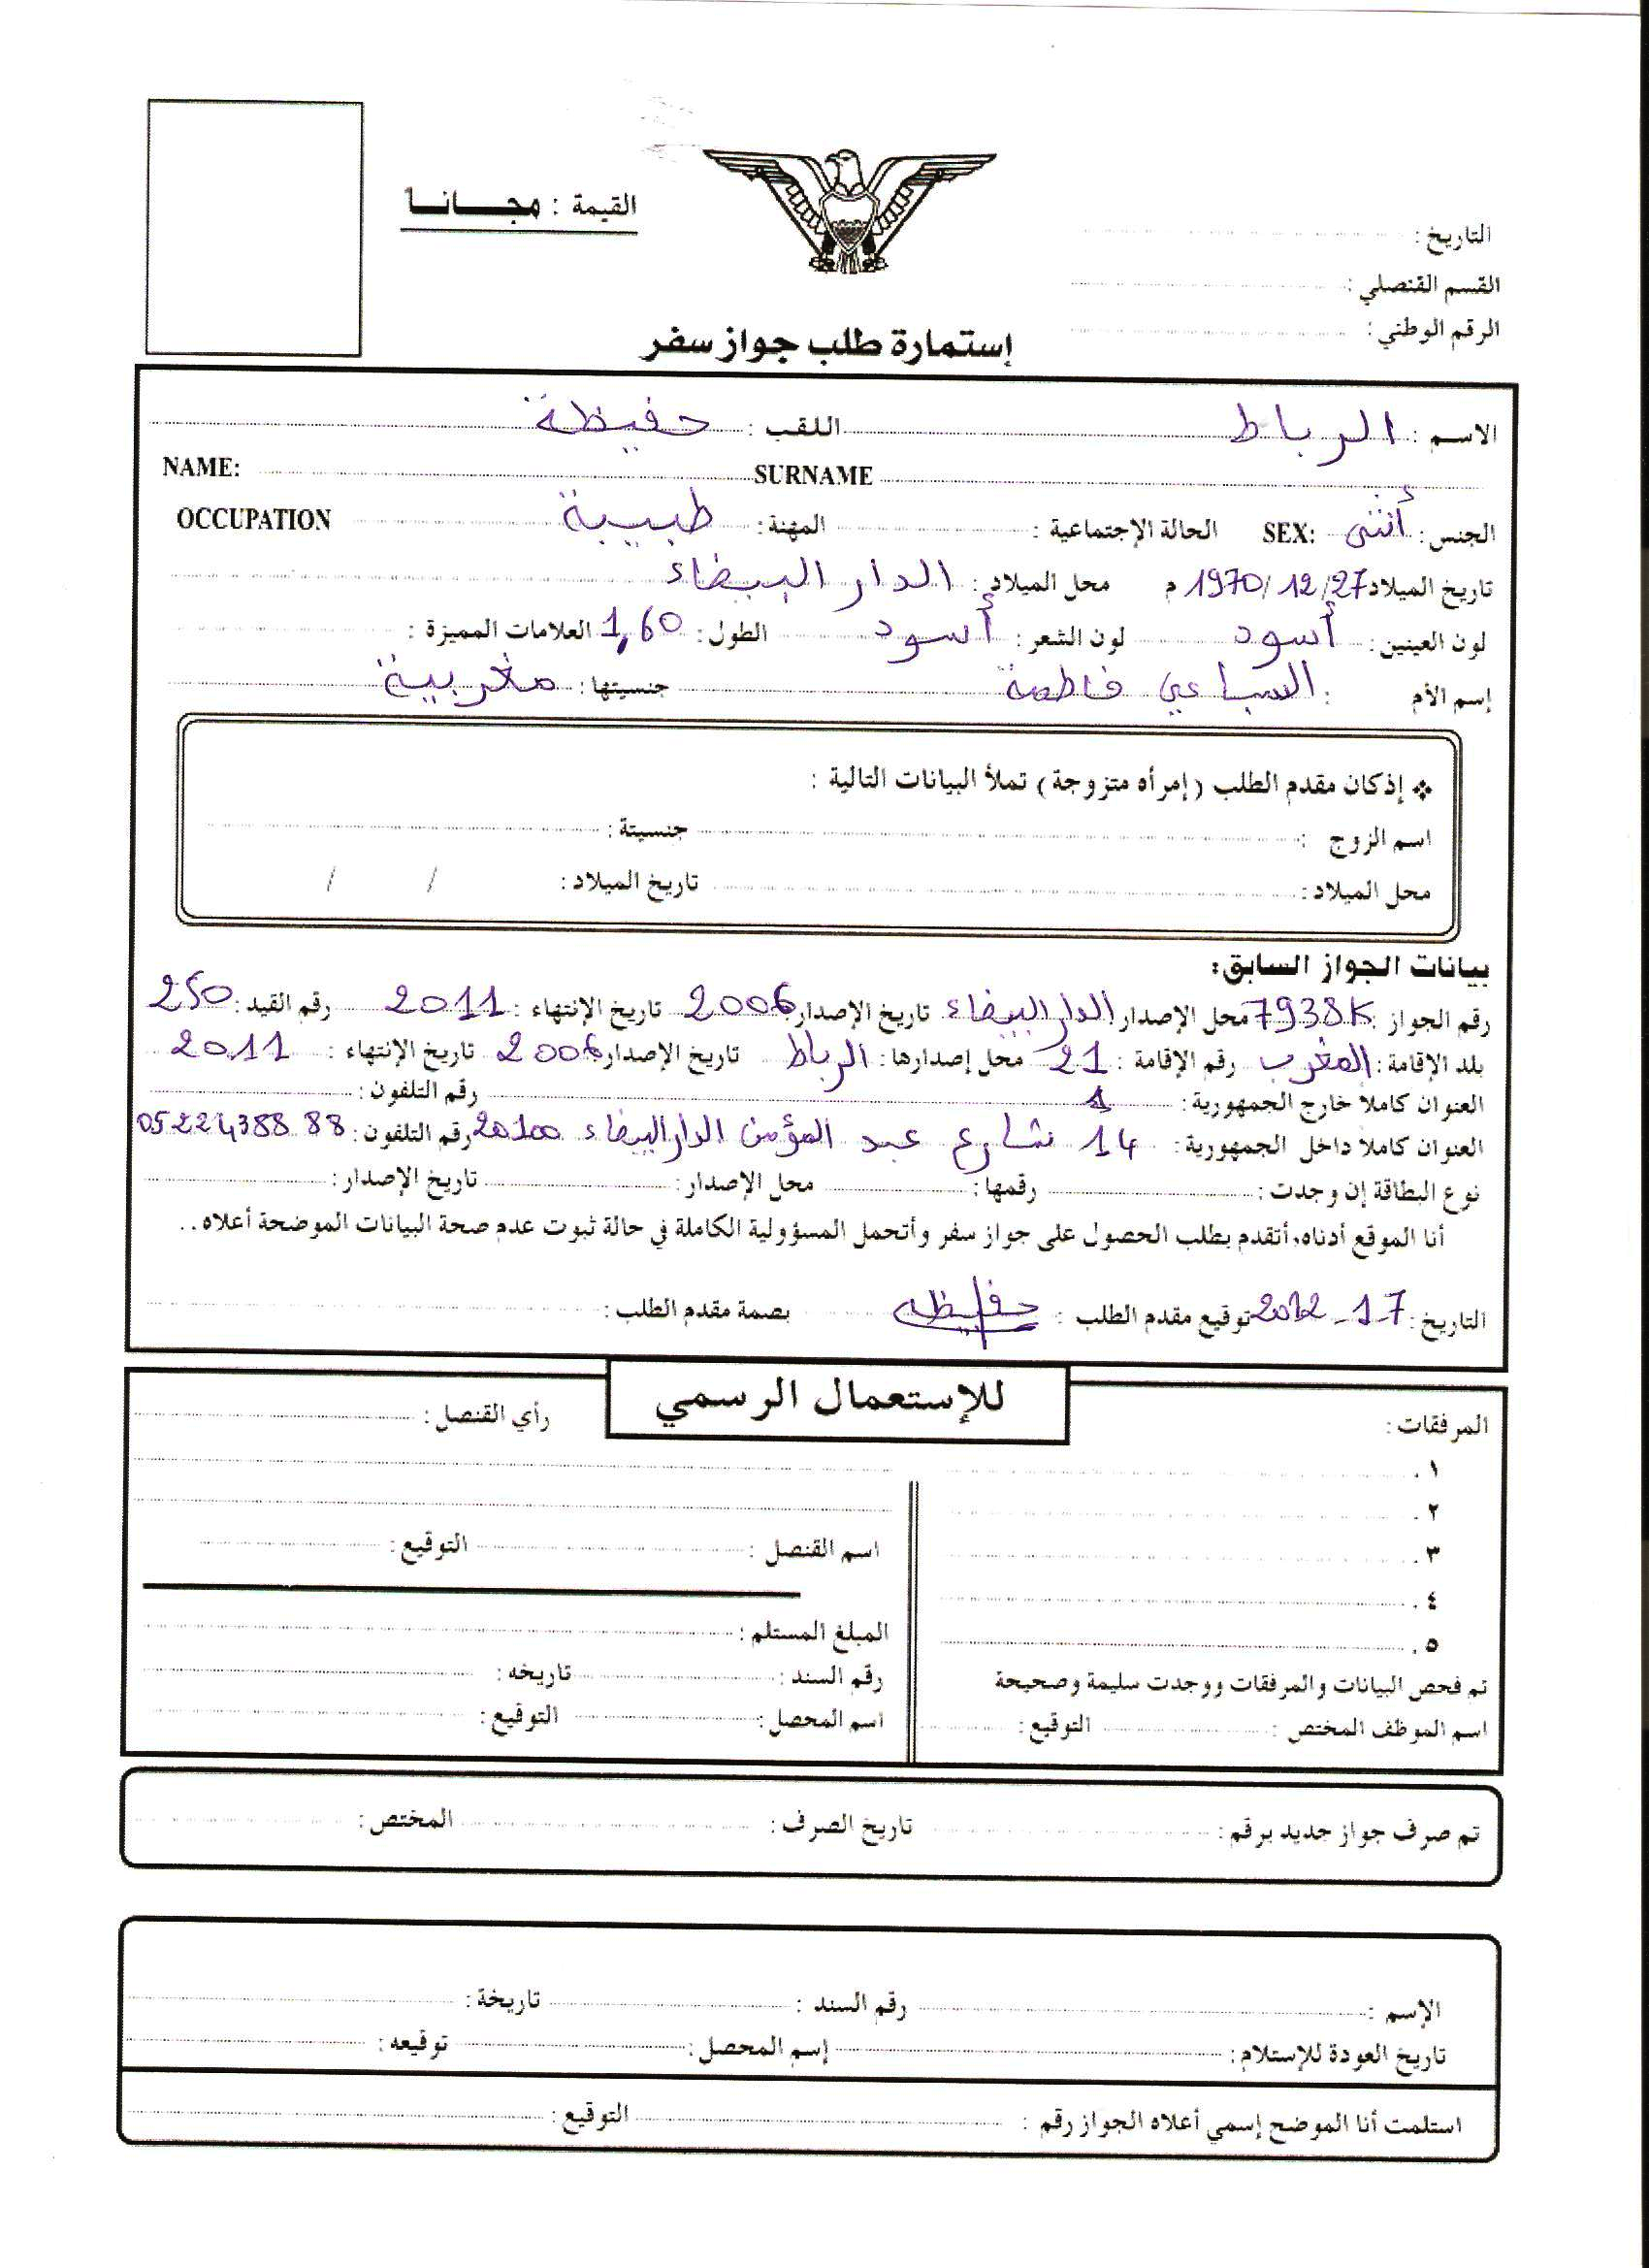 التاريخ:
القيمة : مجــانــا
القسم القنصلي:
الرقم الوطني:
إستمارة طلب جواز سفر
الاسم : الرباط اللقب : حفيظة
NAME: SURNAME
الجنس: أنثى SEX: الحالة الإجتماعية : المهنة: طبيبة OCCUPATION
تاريخ الميلاد 27/12/1970 م محل الميلاد : الدار البيضاء
لون العينين: أسود لون الشعر: أسود الطول: 1,60 العلامات المميزة :
إسم الأم : السباعي فاطمة جنسيتها: مغربية
❖ إذكان مقدم الطلب (إمرأه متزوجة) تملأ البيانات التالية :
اسم الزوج : جنسيتة:
محل الميلاد: تاريخ الميلاد: / /
بيانات الجواز السابق:
رقم الجواز : 7938K محل الإصدار الدار البيضاء تاريخ الإصدار 2006 تاريخ الإنتهاء : 2011 رقم القيد: 250
بلد الإقامة: المغرب رقم الإقامة : 21 محل إصدارها: الرباط تاريخ الإصدار 2006 تاريخ الإنتهاء : 2011
العنوان كاملا خارج الجمهورية: 1 رقم التلفون:
العنوان كاملا داخل الجمهورية: 14 شارع عبد المؤمن الدار البيضاء 20100 رقم التلفون: 0522438888
نوع البطاقة إن وجدت: رقمها: محل الإصدار: تاريخ الإصدار:
أنا الموقع أدناه، أتقدم بطلب الحصول على جواز سفر وأتحمل المسؤولية الكاملة في حالة ثبوت عدم صحة البيانات الموضحة أعلاه..
التاريخ: 7-1-2012 توقيع مقدم الطلب : حفيظة بصمة مقدم الطلب:
للإستعمال الرسمي
المرفقات: رأي القنصل:
١.
٢.
٣. اسم القنصل : التوقيع:
٤.
٥. المبلغ المستلم:
تم فحص البيانات والمرفقات ووجدت سليمة وصحيحة رقم السند : تاريخه:
اسم الموظف المختص : التوقيع: اسم المحصل: التوقيع:
تم صرف جواز جديد برقم: تاريخ الصرف: المختص:
الإسم : رقم السند : تاريخة:
تاريخ العودة للإستلام: إسم المحصل: توقيعه:
استلمت أنا الموضح إسمي أعلاه الجواز رقم : التوقيع: